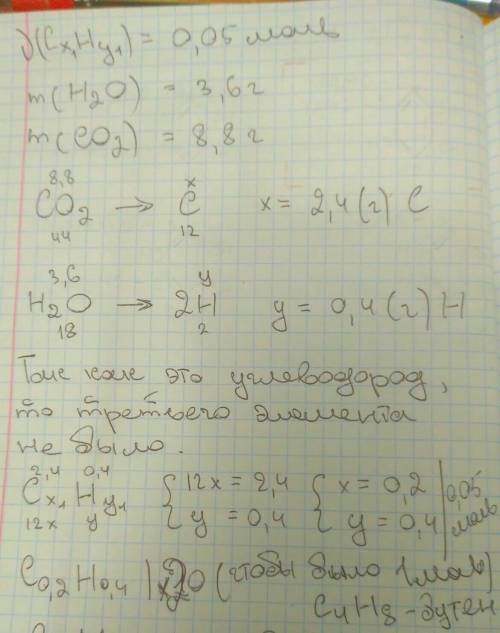 ν(Cx₁Hy₁) = 0,05 моль
m(H2O) = 3,6 г
m(CO2) = 8,8 г
8,8 x
CO2 → C x = 2,4 (г) C
44 12
3,6 y
H2O → 2H y = 0,4 (г) H
18 2
Так как это углеводород,
то третьего элемента
не было.
2,4 0,4
Cx₁Hy₁ { 12x = 2,4 { x = 0,2 | 0,05
12x y { y = 0,4 { y = 0,4 | моль
C0,2H0,4 | 20 (чтобы было 1 моль)
C4H8 - бутен